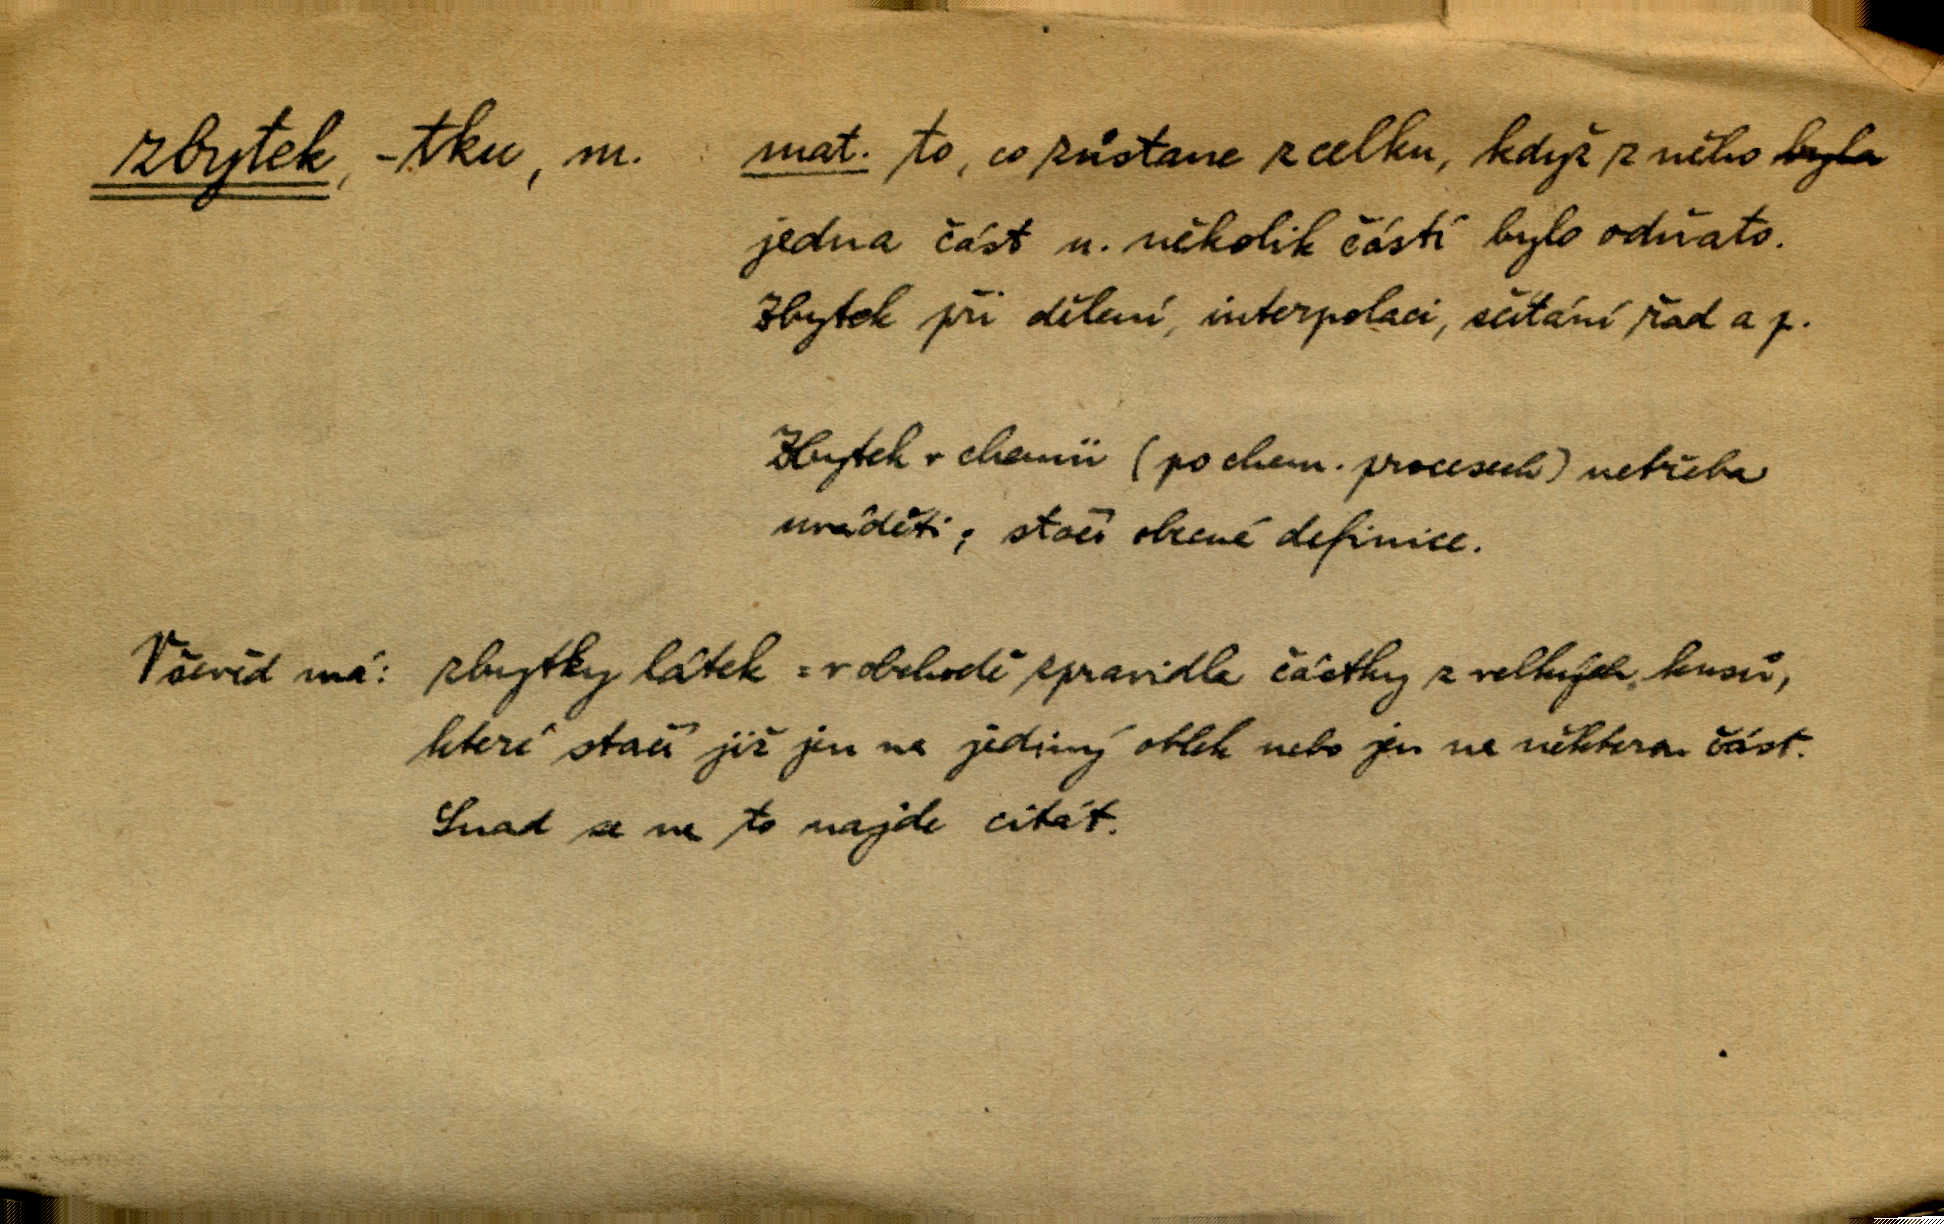 zbytek, -tku, m. mat. to, co zůstane z celku, když z něho byla
jedna část n. několik částí bylo odňato.
Zbytek při dělení, interpolaci, sčítání řad a p.
Zbytek v chemii (po chem. procesech) netřeba
uváděti; stačí obecné definice.
Vševěd má: zbytky látek = v obchodě zpravidla částky z velkých kusů,
které stačí již jen na jediný oblek nebo jen na některou část.
Snad se na to najde citát.